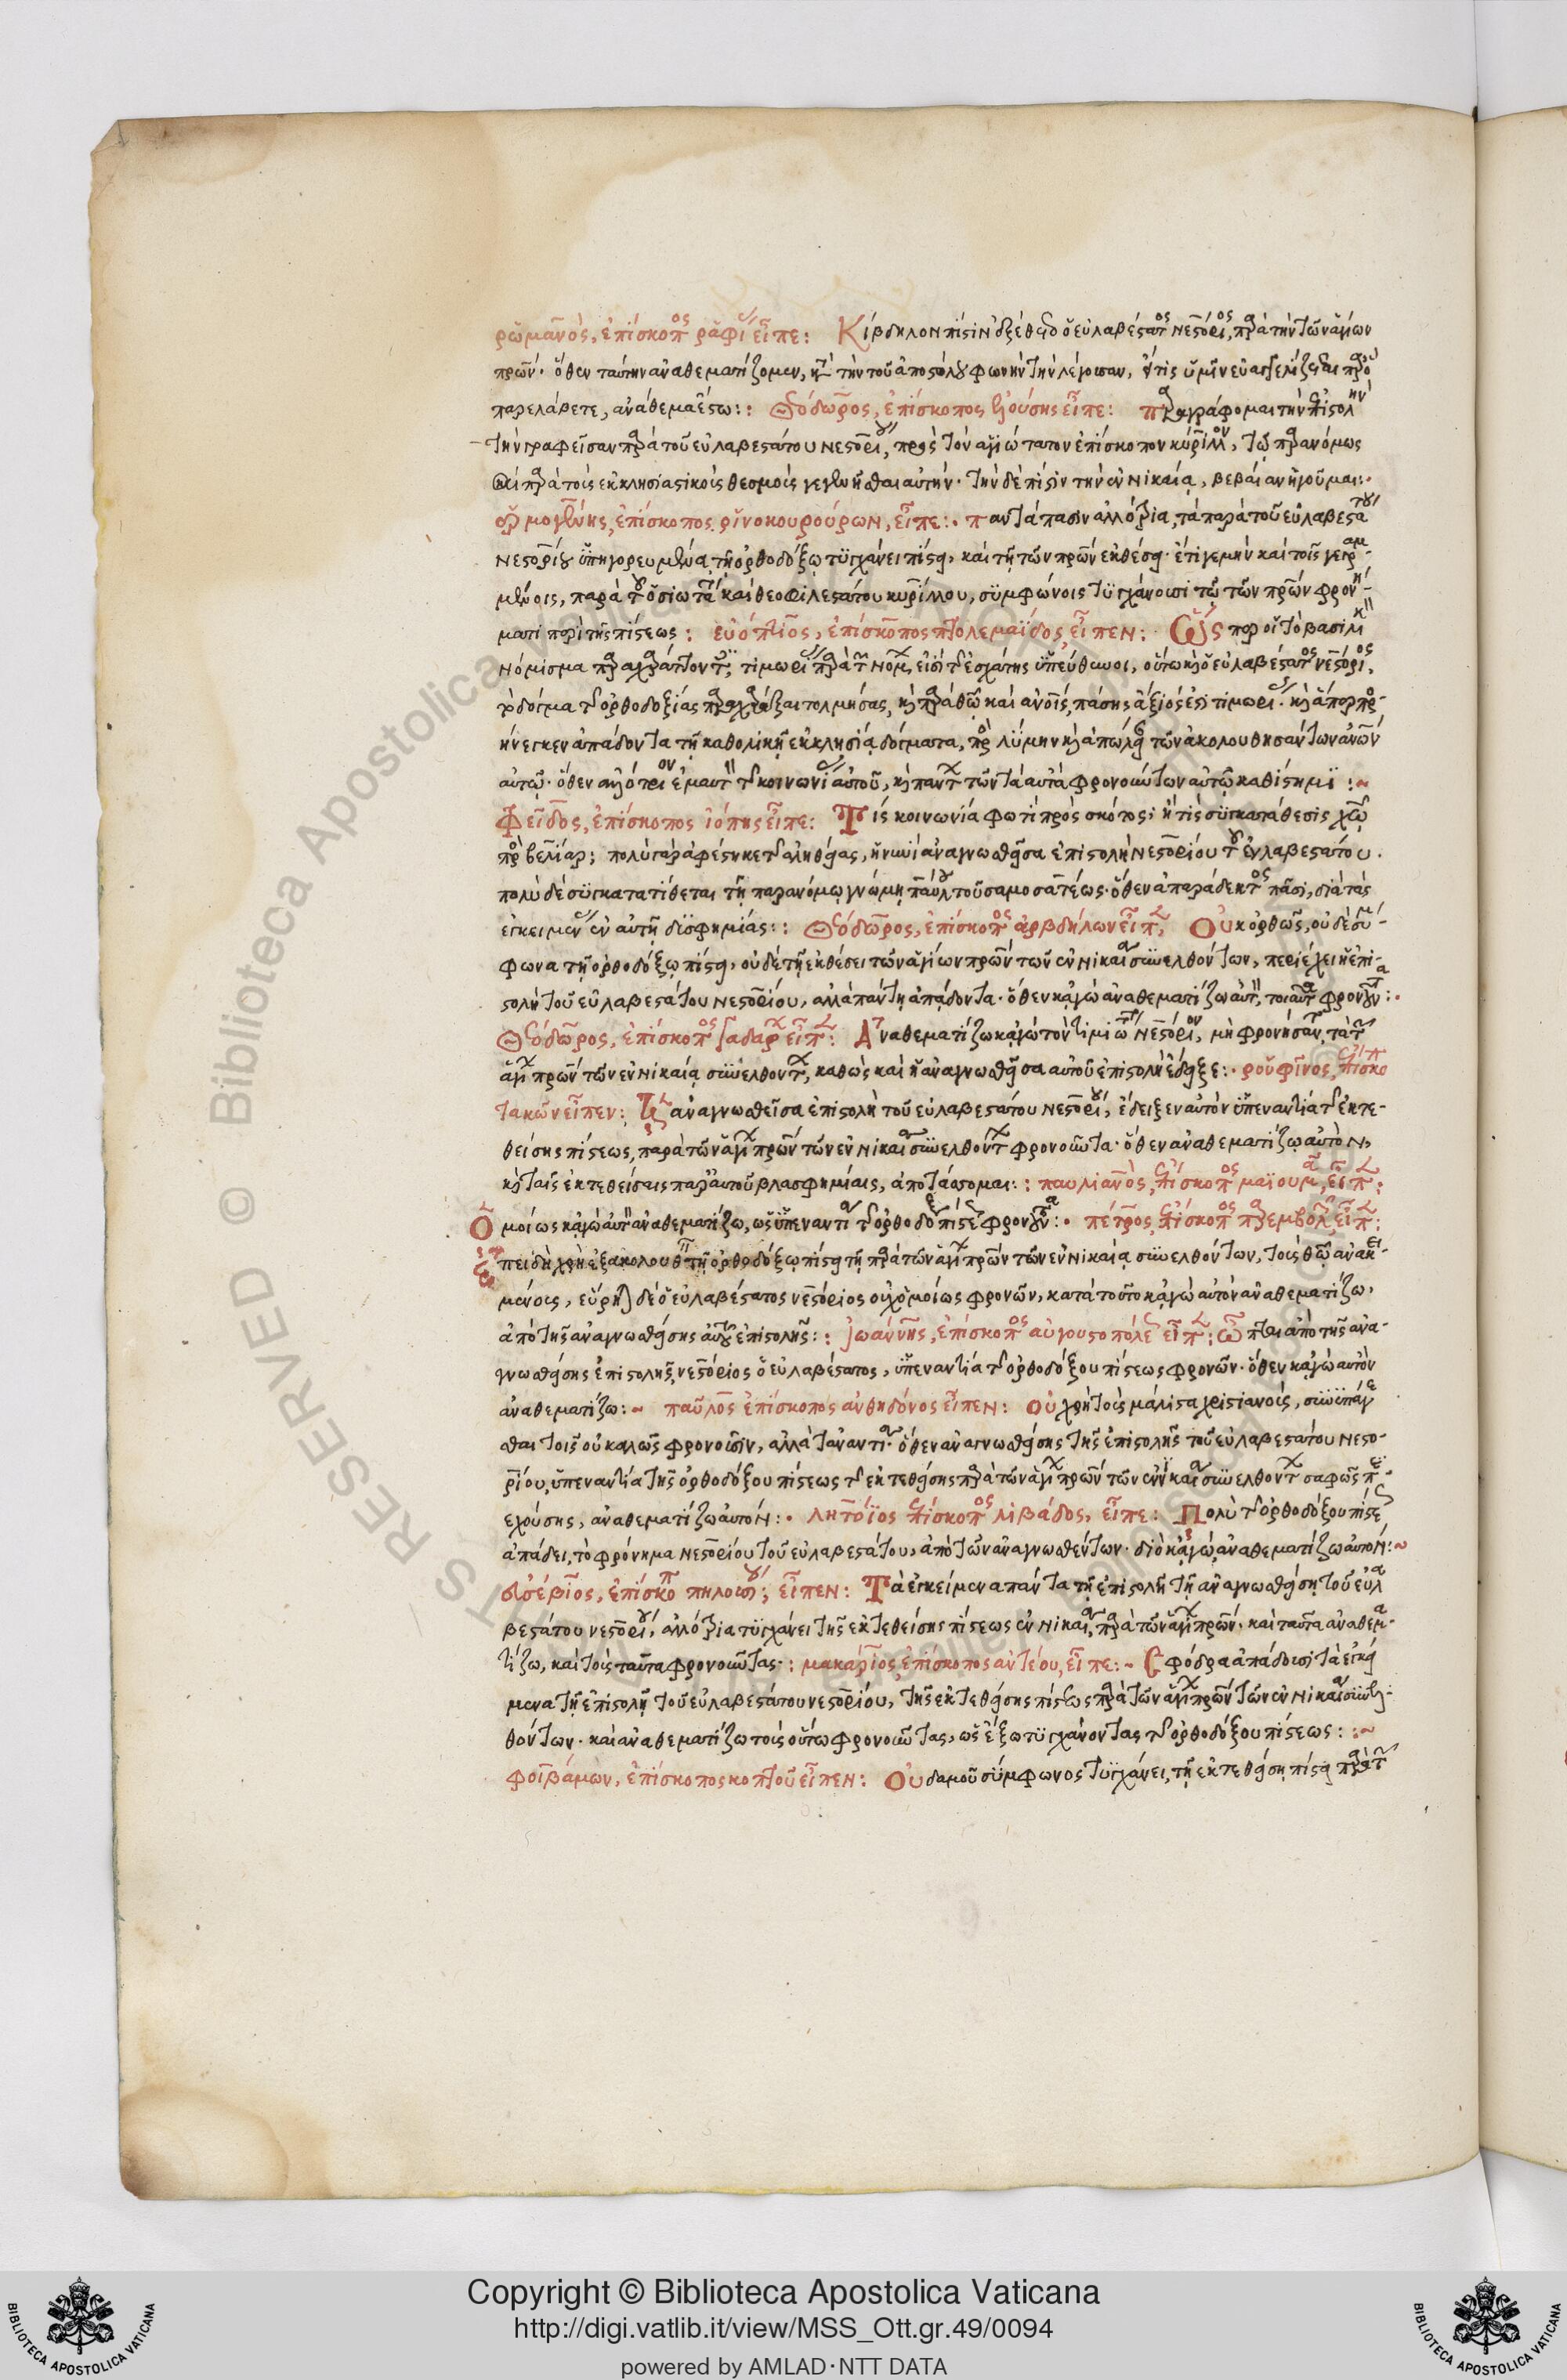 ρωμανὸς, ἐπίσκοπος ραφίας εἶπε: Κίβδηλον πίστιν ἐξέθετο ὁ εὐλαβέστατος νεστόριος, παρὰ τὴν τῶν ἁγίων
πρων. ὅθεν ταύτην ἀναθεματίζομεν, κατὰ τὴν τοῦ ἀποστόλου φωνὴν τὴν λέγουσαν, εἴ τις ὑμῖν εὐαγγελίζεται παρ' ὃ
παρελάβετε, ἀνάθεμα ἔστω:: Θεόδωρος, ἐπίσκοπος εἶπε: παραγράφομαι τὴν ἐπιστολὴν
τὴν γραφεῖσαν παρὰ τοῦ εὐλαβεστάτου νεστορίου, πρὸς τὸν ἁγιώτατον ἐπίσκοπον κύριλλον, τῷ παρανόμως
καὶ παρὰ τοῖς ἐκκλησιαστικοῖς θεσμοῖς γεγενῆσθαι αὐτήν. τὴν δὲ πίστιν τὴν ἐν νικαίᾳ, βεβαίαν ἡγοῦμαι:.
ἑρμογένης, ἐπίσκοπος ῥινοκουρούρων, εἶπε:. παντάπασιν ἀλλότρια, τὰ παρὰ τοῦ εὐλαβεστάτου
νεστορίου ὑπηγορευμένα τῇ ὀρθοδόξῳ τυγχάνει πίστει, καὶ τῇ τῶν πρων ἐκθέσει. ἔτι γε μὴν καὶ τοῖς γεγραμ-
μένοις, παρὰ τοῦ ὁσιωτάτου καὶ θεοφιλεστάτου κυρίλλου, συμφώνοις τυγχάνουσι τῷ τῶν πρων φρονή-
ματι περὶ τῆς πίστεως: εὐόπτιος, ἐπίσκοπος πτολεμαΐδος, εἶπεν: Ὥσπερ οἱ τὸ βασιλικὸν
νόμισμα παραχαράττοντες, τιμωρίας παρὰ τῶν νόμων, εἰσὶ τῆς ἐσχάτης ὑπεύθυνοι, οὕτω καὶ ὁ εὐλαβέστατος νεστόριος,
τὸ δόγμα τῆς ὀρθοδοξίας παραχαράξαι τολμήσας, καὶ παρὰ θῶ καὶ ἀνοις, πάσης ἄξιός ἐστι τιμωρίας. καὶ ἅπερ προσ-
ήνεγκεν ἀπάδοντα τῇ καθολικῇ ἐκκλησίᾳ δόγματα, πρὸς λύμην καὶ ἀπώλειαν τῶν ἀκολουθησάντων ἀνων
αὐτῷ. ὅθεν ἀλλότριον ἐμαυτὸν τῆς κοινωνίας αὐτοῦ, καὶ πάντων τῶν τὰ αὐτὰ φρονούντων αὐτῷ καθίστημι:~
Φεῖδος, ἐπίσκοπος ἰόπης εἶπε: Τίς κοινωνία φωτὶ πρὸς σκότος; ἢ τίς συγκατάθεσις χῶ
πρὸς βελίαρ; πολὺ γὰρ ἀφέστηκε τῆς ἀληθείας, ἡ νυνὶ ἀναγνωσθεῖσα ἐπιστολὴ νεστορίου τοῦ εὐλαβεστάτου.
πολὺ δὲ συγκατατίθεται τῇ παρανόμῳ γνώμῃ παύλου τοῦ σαμοσατέως. ὅθεν ἀπαράδεκτος πᾶσι, διὰ τὰς
ἐγκειμένας ἐν αὐτῇ δυσφημίας:: Θεόδωρος, ἐπίσκοπος ἀρβδήλων εἶπεν, Οὐκ ὀρθῶς, οὐδὲ σύμ-
φωνα τῇ ὀρθοδόξῳ πίστει, οὐδὲ τῇ ἐκθέσει τῶν ἁγίων πρων τῶν ἐν νικαίᾳ συνελθόντων, περιέχει ἡ ἐπι-
στολὴ τοῦ εὐλαβεστάτου νεστορίου, ἀλλὰ πάντη ἀπάδοντα. ὅθεν κἀγὼ ἀναθεματίζω αὐτὸν, τοιαῦτα φρονοῦντα:.
Θεόδωρος, ἐπίσκοπος γαδάρων εἶπεν: Ἀναθεματίζω κἀγὼ τὸν τιμιώτατον νεστόριον, μὴ φρονήσαντα, τὰ τῶν
ἁγίων πρων τῶν ἐν νικαίᾳ συνελθόντων, καθὼς καὶ ἡ ἀναγνωσθεῖσα αὐτοῦ ἐπιστολὴ ἔδειξε:. ρουφῖνος, ἐπίσκοπος
τακῶν εἶπεν: Ἡ ἀναγνωσθεῖσα ἐπιστολὴ τοῦ εὐλαβεστάτου νεστορίου, ἔδειξεν αὐτὸν ὑπεναντία τῆς ἐκτε-
θείσης πίστεως, παρὰ τῶν ἁγίων πρων τῶν ἐν νικαίᾳ συνελθόντων φρονοῦντα. ὅθεν ἀναθεματίζω αὐτὸν,
καὶ ταῖς ἐκτεθείσαις παρ' αὐτοῦ βλασφημίαις, ἀποτάσσομαι:: παυλιανὸς, ἐπίσκοπος μαϊουμᾶ, εἶπεν:
Ὁμοίως κἀγὼ αὐτὸν ἀναθεματίζω, ὡς ὑπεναντία τῆς ὀρθοδόξου πίστεως φρονοῦντα:. πέτρος, ἐπίσκοπος παρεμβολῶν, εἶπεν:
ἐπειδὴ χρὴ ἐξακολουθεῖν τῇ ὀρθοδόξῳ πίστει τῇ παρὰ τῶν ἁγίων πρων τῶν ἐν νικαίᾳ συνελθόντων, τοὺς θῶ ἀνακει-
μένους, εὕρηται δὲ ὁ εὐλαβέστατος νεστόριος οὐχ ὁμοίως φρονῶν, κατὰ τοῦτο κἀγὼ αὐτὸν ἀναθεματίζω,
ἀπὸ τῆς ἀναγνωσθείσης αὐτοῦ ἐπιστολῆς:: ἰωάννης, ἐπίσκοπος αὐγουστοπόλεως εἶπεν: ὤφθη ἀπὸ τῆς ἀνα-
γνωσθείσης ἐπιστολῆς, νεστόριος ὁ εὐλαβέστατος, ὑπεναντία τῆς ὀρθοδόξου πίστεως φρονῶν. ὅθεν κἀγὼ αὐτὸν
ἀναθεματίζω:~ παῦλος ἐπίσκοπος ἀνθηδόνος εἶπεν: Οὐ χρὴ τοὺς μάλιστα χριστιανοὺς, συνυπάγε-
σθαι τοῖς οὐ καλῶς φρονοῦσιν, ἀλλὰ τἀναντία. ὅθεν ἀναγνωσθείσης τῆς ἐπιστολῆς τοῦ εὐλαβεστάτου νεστο-
ρίου, ὑπεναντία τῆς ὀρθοδόξου πίστεως τῆς ἐκτεθείσης παρὰ τῶν ἁγίων πρων τῶν ἐν νικαίᾳ συνελθόντων σαφῶς περι-
εχούσης, ἀναθεματίζω αὐτόν:. λητόϊος ἐπίσκοπος λιβάδος, εἶπε: Πολὺ τῆς ὀρθοδόξου πίστεως
ἀπάδει, τὸ φρόνημα νεστορίου τοῦ εὐλαβεστάτου, ἀπὸ τῶν ἀναγνωσθέντων. διὸ κἀγὼ, ἀναθεματίζω αὐτόν:~
εὐσέβιος, ἐπίσκοπος πηλουσίου, εἶπεν: Τὰ ἐγκείμενα πάντα τῇ ἐπιστολῇ τῇ ἀναγνωσθείσῃ τοῦ εὐλα-
βεστάτου νεστορίου, ἀλλότρια τυγχάνει τῆς ἐκτεθείσης πίστεως ἐν νικαίᾳ, παρὰ τῶν ἁγίων πρων. καὶ ταῦτα ἀναθεμα-
τίζω, καὶ τοὺς ταῦτα φρονοῦντας:: μακάριος, ἐπίσκοπος ἀντέου, εἶπε:~ Σφόδρα ἀπάδουσι τὰ ἐγκεί-
μενα τῇ ἐπιστολῇ τοῦ εὐλαβεστάτου νεστορίου, τῆς ἐκτεθείσης πίστεως παρὰ τῶν ἁγίων πρων τῶν ἐν νικαίᾳ συνελ-
θόντων. καὶ ἀναθεματίζω τοὺς οὕτω φρονοῦντας, ὡς ἔξω τυγχάνοντας τῆς ὀρθοδόξου πίστεως::~
φοιβάμων, ἐπίσκοπος κοπτοῦ εἶπεν: Οὐδαμοῦ σύμφωνος τυγχάνει, τῇ ἐκτεθείσῃ πίστει παρὰ τῶν
Copyright © Biblioteca Apostolica Vaticana
http://digi.vatlib.it/view/MSS_Ott.gr.49/0094
powered by AMLAD·NTT DATA
BIBLIOTECA APOSTOLICA VATICANA
BIBLIOTECA APOSTOLICA VATICANA